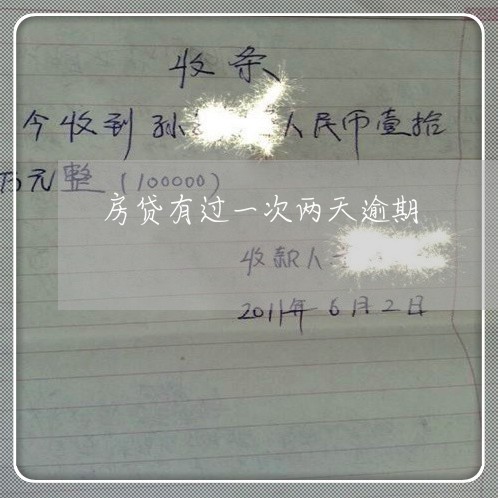 收条
今收到孙 人民币壹拾
万元整(100000)
房贷有过一次两天逾期
收款人
2011年6月2日